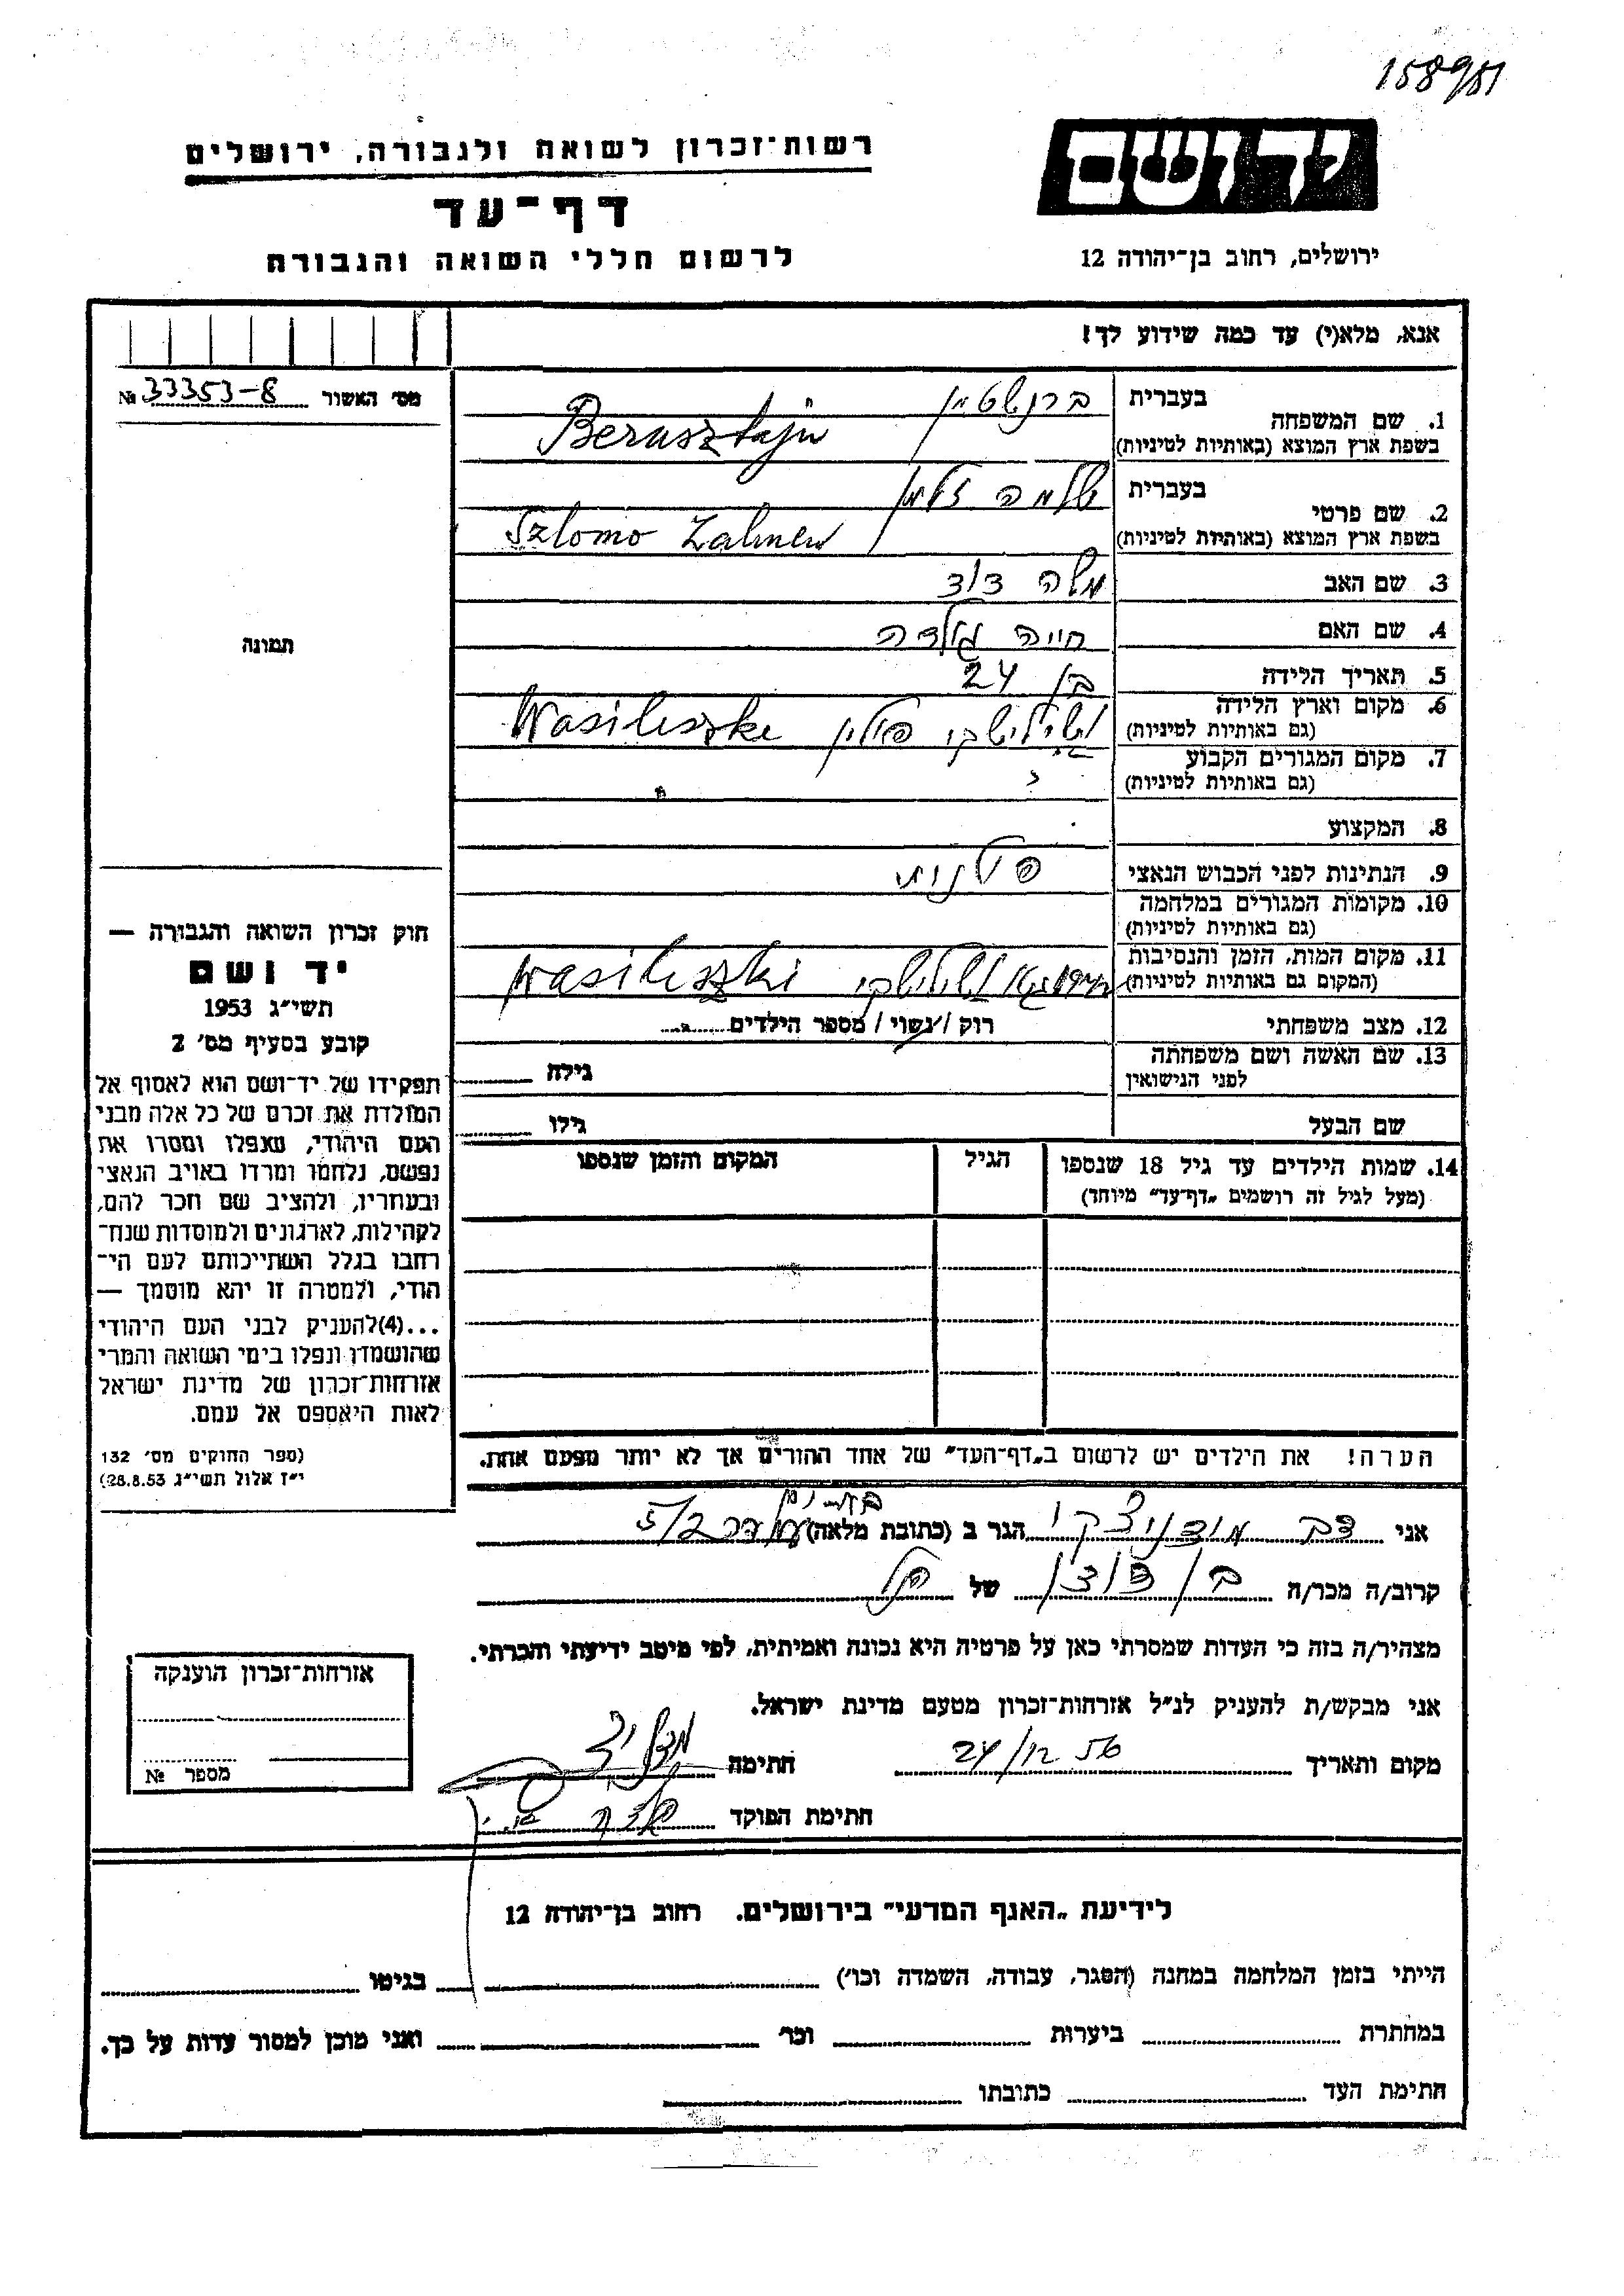 158981
רשות־זכרון לשואה ולגבורה, ירושלים
דף־עד
לרשום חללי השואה והגבורה
יד ושם
ירושלים, רחוב בן־יהודה 12
אנא, מלא(י) עד כמה שידוע לך!
מס׳ האשור № 33353-8
תמונה
בעברית ברנשטין
1. שם המשפחה
בשפת ארץ המוצא (באותיות לטיניות) Bernsztajn
בעברית שלמה זלמן
2. שם פרטי
בשפת ארץ המוצא (באותיות לטיניות) Szlomo Zalmen
3. שם האב משה דוד
4. שם האם חייה גולדה
5. תאריך הלידה בן 24
6. מקום וארץ הלידה
(גם באותיות לטיניות) ושילישקי פולין Wasiliszke
7. מקום המגורים הקבוע
(גם באותיות לטיניות)
8. המקצוע
9. הנתינות לפני הכבוש הנאצי פולנית
10. מקומות המגורים במלחמה
(גם באותיות לטיניות)
11. מקום המות, הזמן והנסיבות
(המקום גם באותיות לטיניות) ושילישקי Wasiliszki
12. מצב משפחתי רוק / נשוי / מספר הילדים
13. שם האשה ושם משפחתה
לפני הנישואין גילה
שם הבעל גילו
14. שמות הילדים עד גיל 18 שנספו
(מעל לגיל זה רושמים „דף־עד״ מיוחד)
הגיל
המקום והזמן שנספו
הערה! את הילדים יש לרשום ב„דף־העד״ של אחד ההורים אך לא יותר מפעם אחת.
חוק זכרון השואה והגבורה —
יד ושם
תשי״ג 1953
קובע בסעיף מס׳ 2
תפקידו של יד־ושם הוא לאסוף אל
המולדת את זכרם של כל אלה מבני
העם היהודי, שנפלו ומסרו את
נפשם, נלחמו ומרדו באויב הנאצי
ובעוזריו, ולהציב שם וזכר להם,
לקהילות, לארגונים ולמוסדות שנח־
רבו בגלל השתייכותם לעם הי־
הודי, ולמטרה זו יהא מוסמך —
...(4)להעניק לבני העם היהודי
שהושמדו ונפלו בימי השואה והמרי
אזרחות־זכרון של מדינת ישראל
לאות היאספם אל עמם.
(ספר החוקים מס׳ 132
י״ז אלול תשי״ג 28.8.53)
אני דב מודניצקי הגר ב (כתובת מלאה) 5/2
קרוב/ה מכר/ה בן דודן של הנ״ל
מצהיר/ה בזה כי העדות שמסרתי כאן על פרטיה היא נכונה ואמיתית, לפי מיטב ידיעתי והכרתי.
אני מבקש/ת להעניק לנ״ל אזרחות־זכרון מטעם מדינת ישראל.
מקום ותאריך 24/12 56 חתימה
חתימת הפוקד
אזרחות־זכרון הוענקה
מספר №
לידיעת „האגף המדעי״ בירושלים. רחוב בן־יהודה 12
הייתי בזמן המלחמה במחנה (הסגר, עבודה, השמדה וכו׳) בגיטו
במחתרת ביערות וכו׳ ואני מוכן למסור עדות על כך.
חתימת העד כתובתו